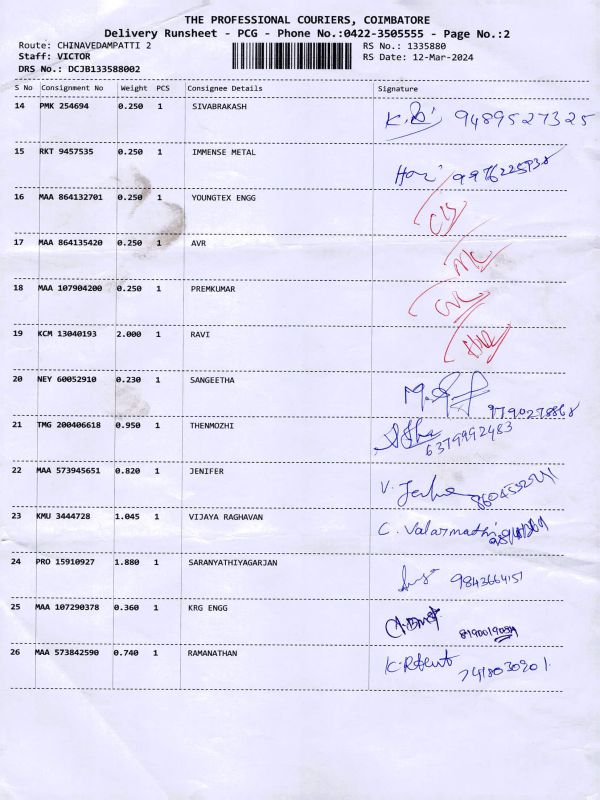 THE PROFESSIONAL COURIERS, COIMBATORE
Delivery Runsheet - PCG - Phone No.:0422-3505555 - Page No.:2
Route: CHINAVEDAMPATTI 2 RS No.: 1335880
Staff: VICTOR RS Date: 12-Mar-2024
DRS No.: DCJB133588002
S No Consignment No Weight PCS Consignee Details Signature
14 PMK 254694 0.250 1 SIVABRAKASH 9489527325
15 RKT 9457535 0.250 1 IMMENSE METAL
16 MAA 864132701 0.250 1 YOUNGTEX ENGG
17 MAA 864135420 0.250 1 AVR
18 MAA 107904200 0.250 1 PREMKUMAR
19 KCM 13040193 2.000 1 RAVI
20 NEY 60052910 0.230 1 SANGEETHA
21 TMG 200406618 0.950 1 THENMOZHI 6379992483
22 MAA 573945651 0.820 1 JENIFER
23 KMU 3444728 1.045 1 VIJAYA RAGHAVAN C. Valarmathi
24 PRO 15910927 1.880 1 SARANYATHIYAGARJAN
25 MAA 107290378 0.360 1 KRG ENGG
26 MAA 573842590 0.740 1 RAMANATHAN 7418030201